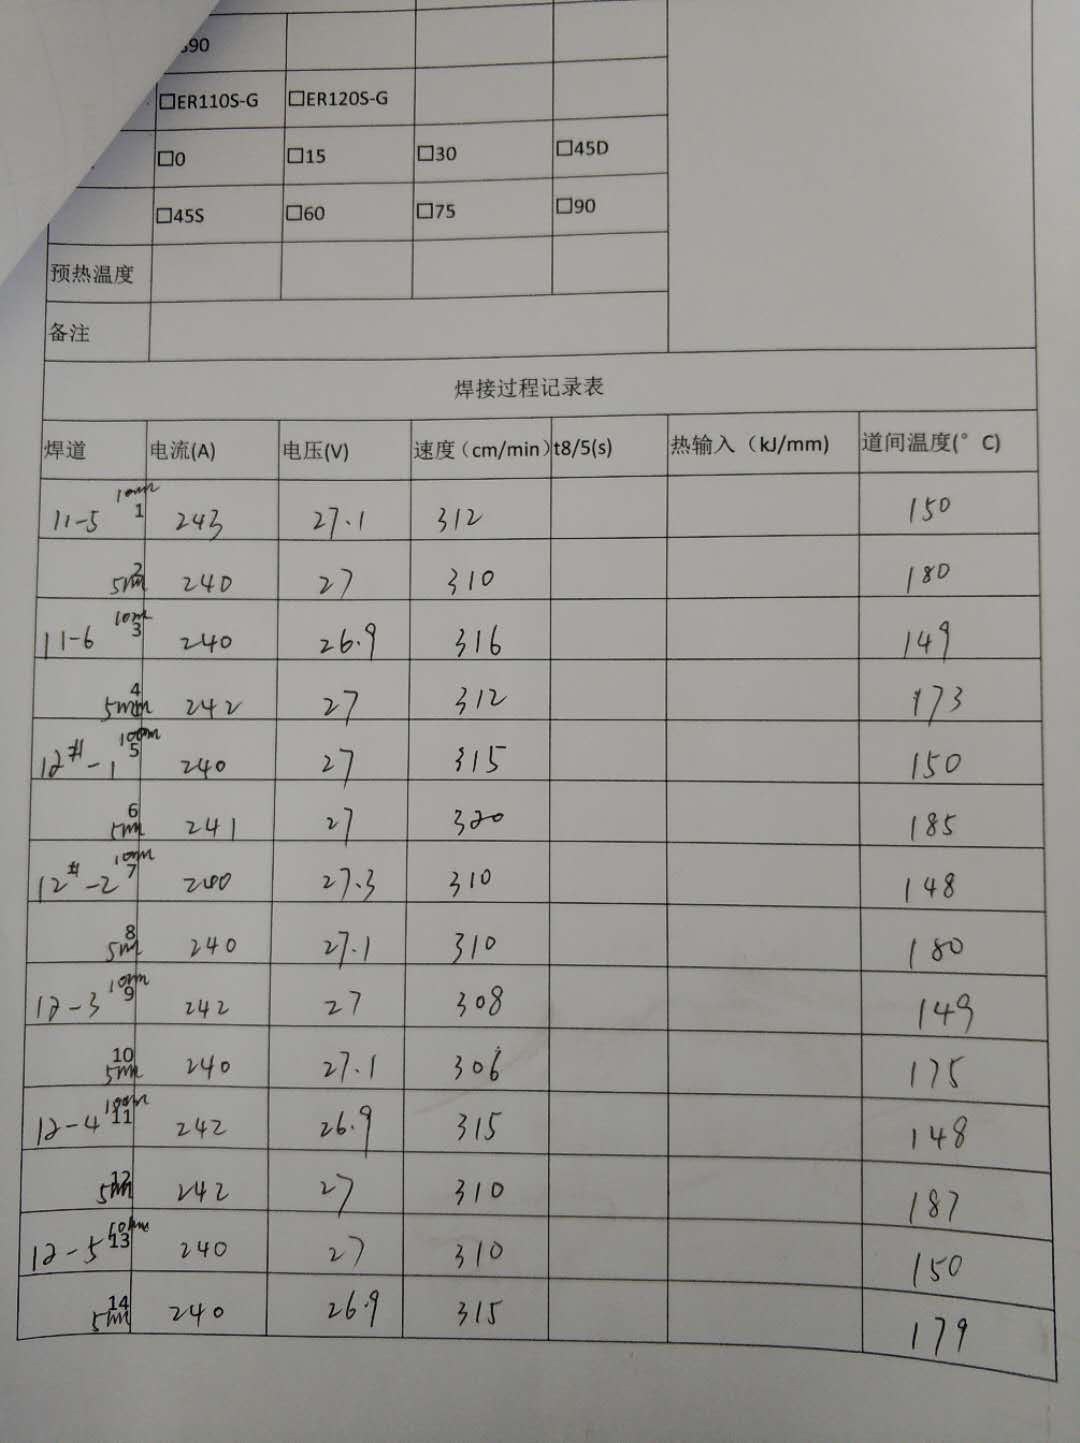 590
□ER110S-G □ER120S-G
□0 □15 □30 □45D
□45S □60 □75 □90
预热温度
备注
焊接过程记录表
焊道 电流(A) 电压(V) 速度（cm/min) t8/5(s) 热输入（kJ/mm) 道间温度(°C)
11-5 10mm 1 243 27.1 312 150
5mm 2 240 27 310 180
11-6 10mm 3 240 26.9 316 149
5mm 4 242 27 312 173
12#-1 10mm 5 240 27 315 150
5mm 6 241 27 320 185
12#-2 10mm 7 240 27.3 310 148
5mm 8 240 27.1 310 180
12-3 10mm 9 242 27 308 149
5mm 10 240 27.1 306 175
12-4 10mm 11 242 26.9 315 148
5mm 12 242 27 310 187
12-5 10mm 13 240 27 310 150
5mm 14 240 26.9 315 179